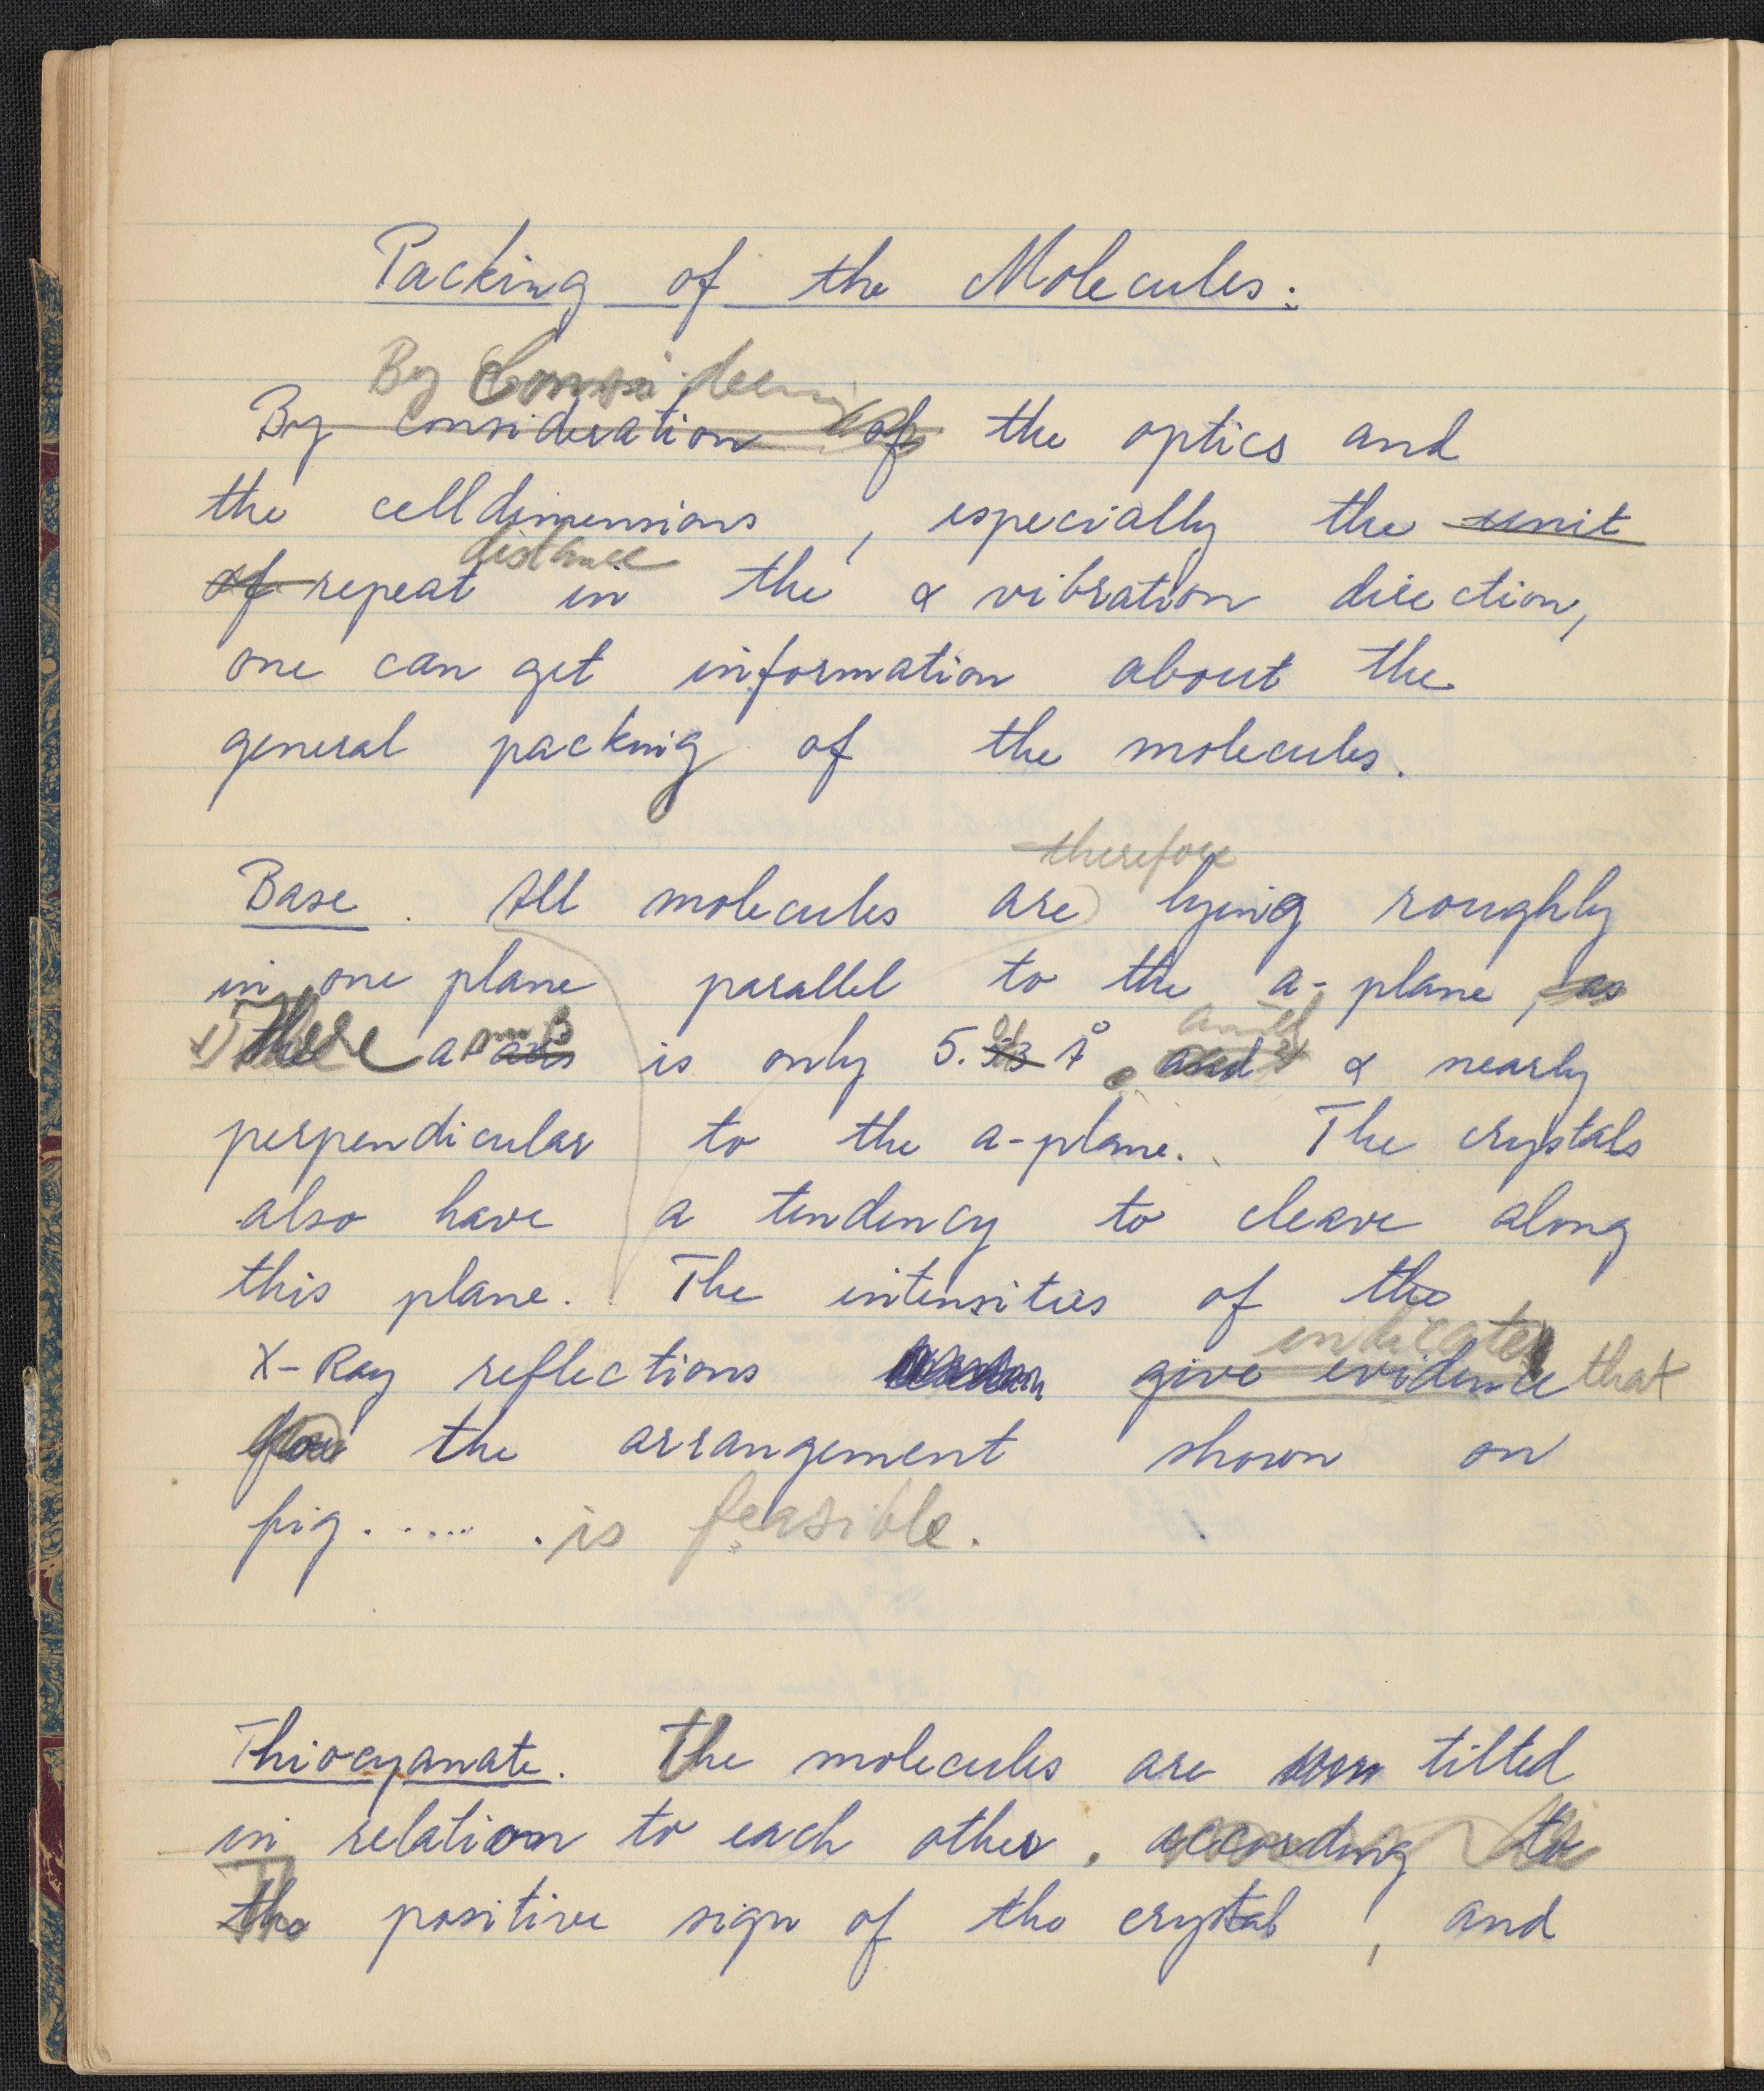 Packing of the Molecules:
By Considering
By consideration of the optics and
the celldimensions, especially the unit
distance
of repeat in the α vibration direction,
one can get information about the
general packing of the molecules.
therefore
Base. All molecules are lying roughly
in one plane parallel to the a-plane, as
the a axis is only 5. Å and α nearly
perpendicular to the a-plane. The crystals
also have a tendency to cleave along
this plane. The intensities of the
indicates
X-Ray reflections give evidence that
the arrangement shown on
fig....... is feasible.
Thiocyanate. The molecules are tilted
in relation to each other. according to
The positive sign of the crystal, and